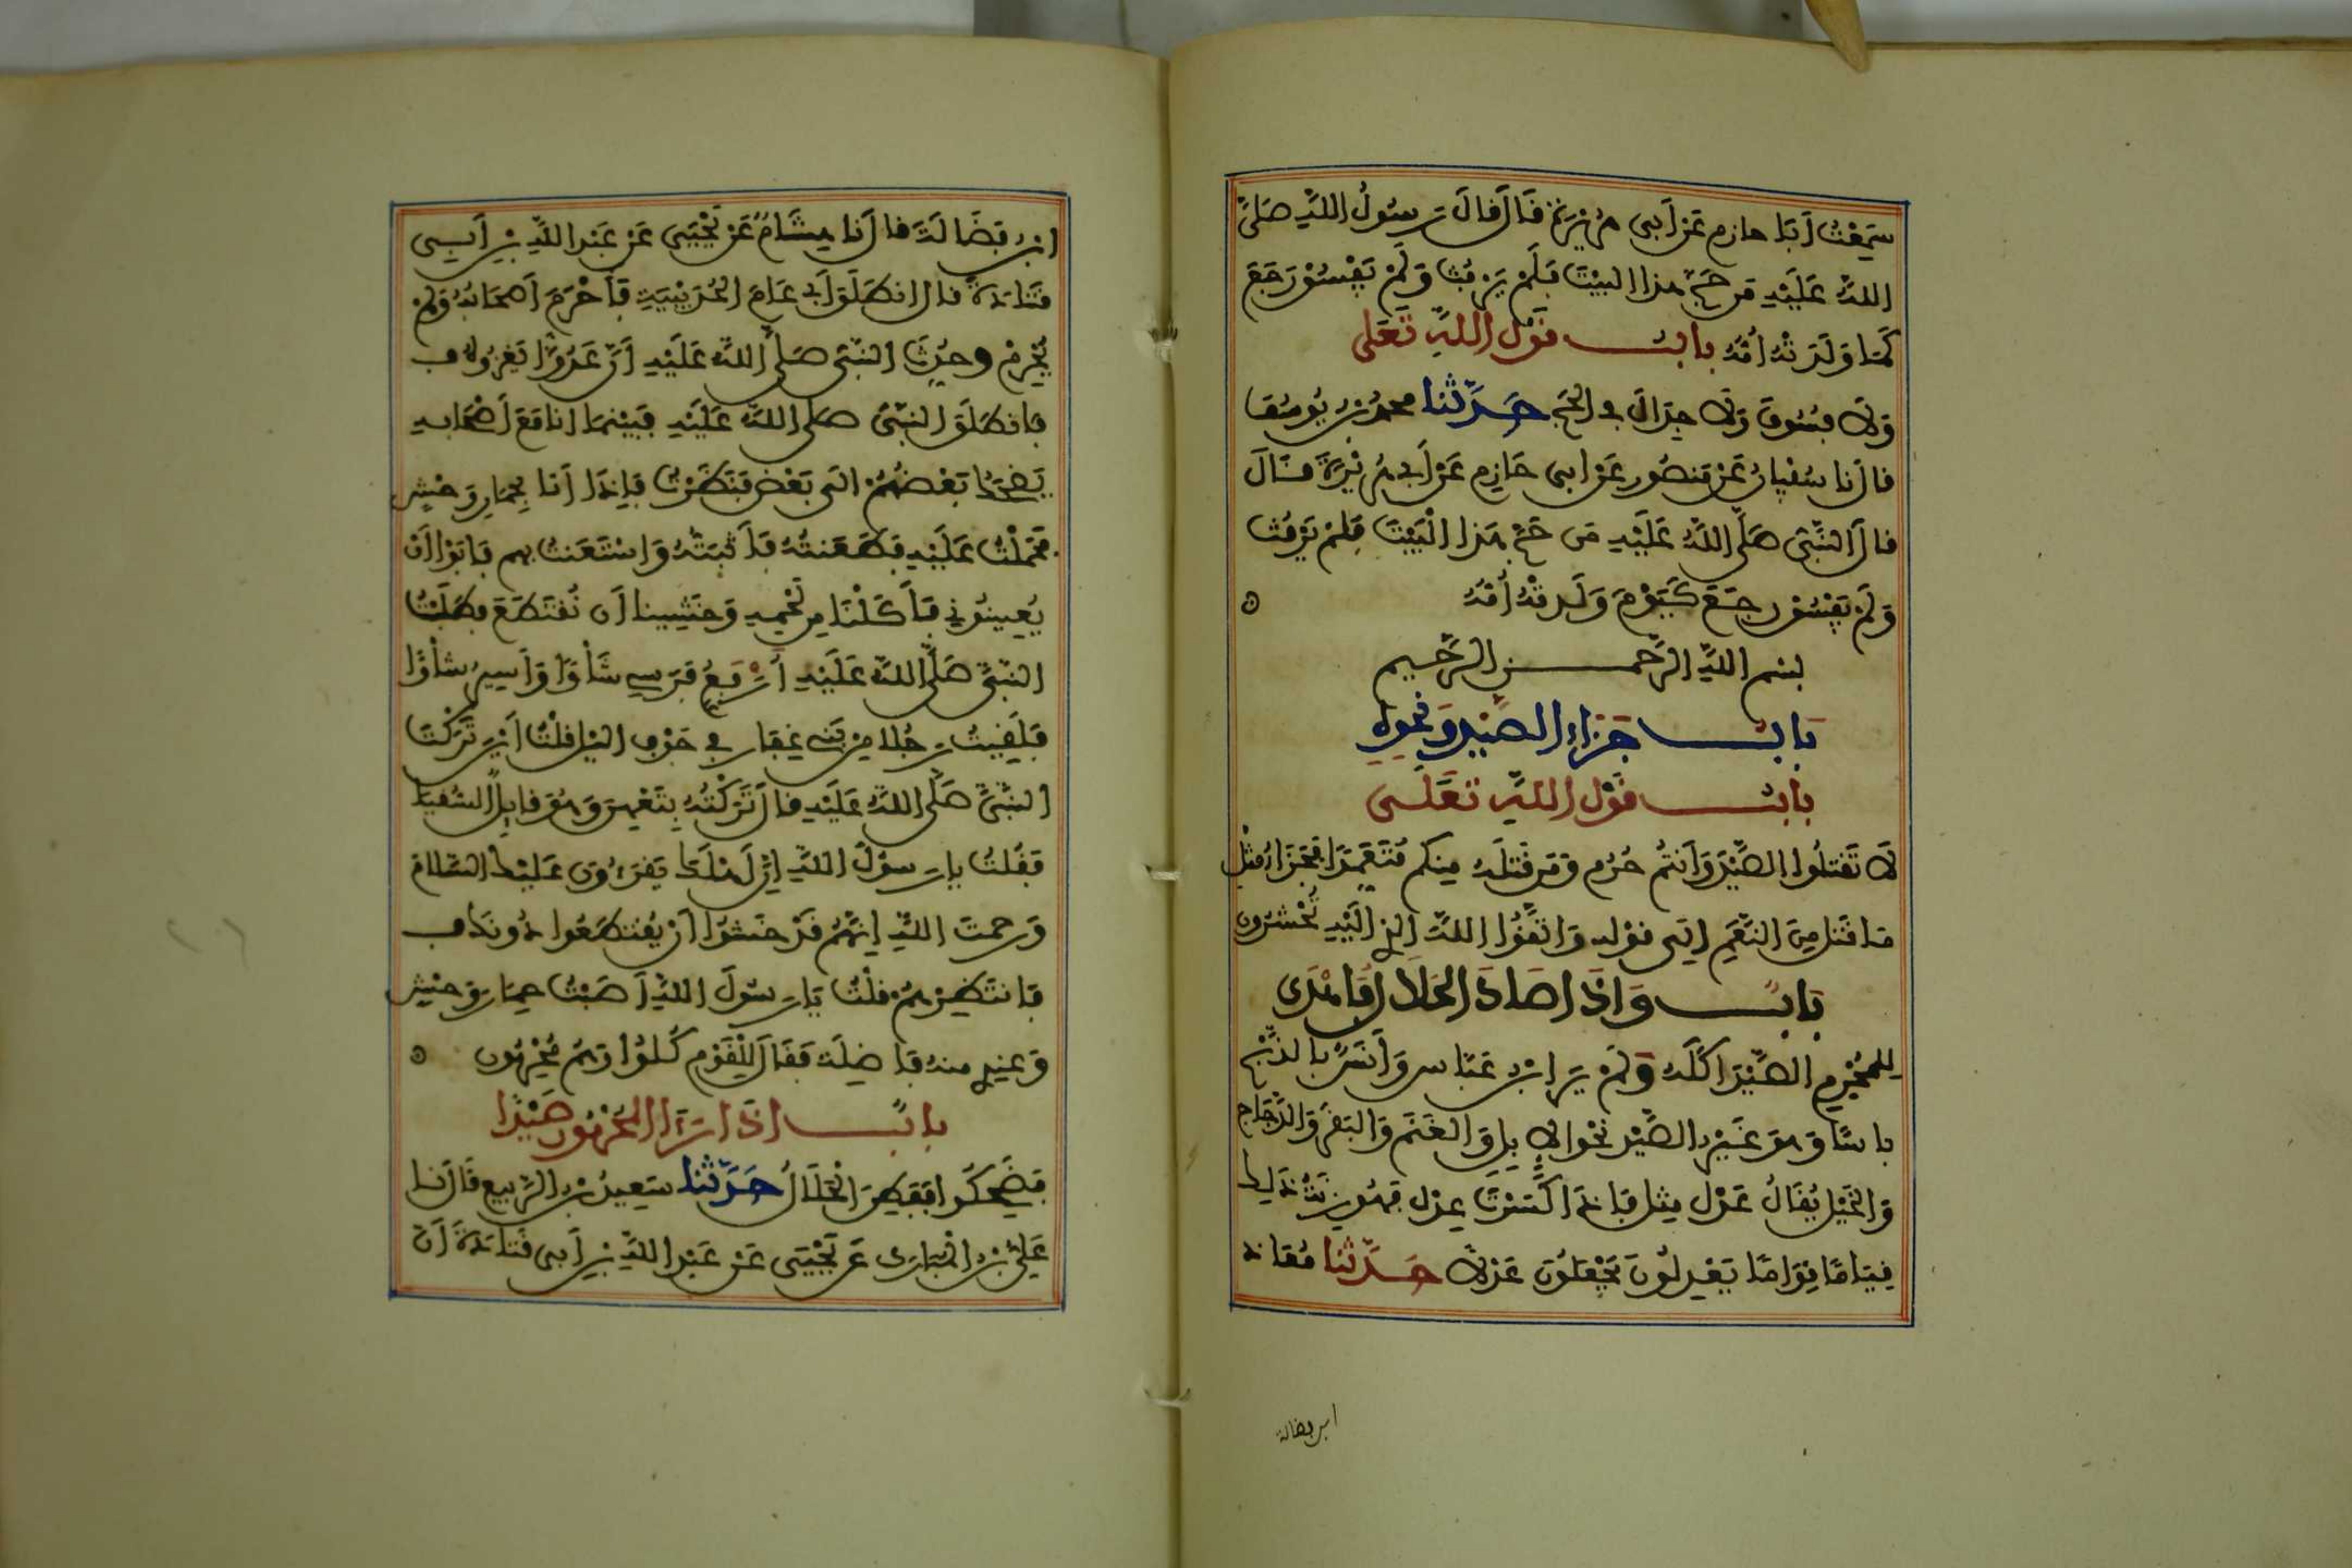 سَمِعْتُ أَبَا حازم عَن أَبِي هُرَيْرَة قَالَ قَالَ رَسولُ اللَّهِ صَلَّى
اللَّهُ عَلَيْهِ مَن حَجَّ هذا البَيْتَ فَلَمْ يَرْفُث وَلَمْ يَفْسُقْ رَجَعَ
كَمَا وَلَدَتْهُ أُمُّهُ بَابُ قَوْلِ اللَّهِ تَعَلَى
وَلَا فُسُوقَ وَلَا جِدَالَ فِي الحَجِّ حَدَّثنا محمد بن يُوسُفَ
قال نا سُفْيَانُ عَنْ مَنصُورٍ عَنْ ابِي حَازِمٍ عَنْ أَبِي هُرَيْرَةَ قَالَ
قال النَّبِيُّ صَلَّى اللَّهُ عَلَيْهِ مَن حَجَّ هَذا الْبَيْتَ فَلَمْ يَرْفُث
وَلَمْ يَفْسُقْ رجَعَ كَيَوْمَ وَلَدَتْهُ أُمُّهُ
بسم اللَّهِ الرَّحمن الرَّحِيم
بَابُ جَزَاءِ الصَّيْدِ وَنَحْوِهِ
بابُ قَوْلِ اللَّهِ تَعَلَى
لَا تَقْتُلُوا الصَّيْدَ وَأَنتُمْ حُرُم وَمَن قَتَلَهُ مِنكم مُتَعَمِّدًا فَجَزَاءُ مِثْل
مَا قَتَلَ مِنَ النَّعَمِ إلَى قوْله وَاتَّقُوا اللَّهَ الذِي إلَيْهِ تُحْشَرُون
بَابُ وَإذَا صَادَ الحَلَالُ فَأَهْدَى
لِلمُحْرِم الصَّيْدَ اكَلَهُ وَلَمْ يَرَ ابْنُ عَبَّاس وَأَنَسٌ بِالذَّبْحِ
بَاسًا وَهوَ غَيْرُ الصَّيْدِ نَحْوَ الإِبِلِ وَالغَنَمِ وَالبَقَرِ وَالدَّجَاج
وَالخَيْلِ يُقَالُ عَدْلُ مِثْل فَإِذَا كَسَرْتَ عِدْل فَهُوَ زِنَةُ ذَلِكَ
قِيَامًا قِوَامًا يَعْدِلُونَ يَجْعَلُونَ عَدْلًا حَدَّثنا مُعَاذ
ابن فضالة
ابْنُ فَضَالَةَ قال نا هِشَامٌ عَنْ يَحْيَى عَنْ عَبْدِ اللَّهِ بْنِ أَبِي
قَتَادَةَ قال انطَلَقَ أَبِي عَامَ الحُدَيْبِيَةِ فَأَحْرَمَ أَصْحَابُهُ وَلَمْ
يُحْرِمْ وحُدِّثَ النَّبِيُّ صَلَّى اللَّهُ عَلَيْهِ أَنَّ عَدُوًّا يَغْزُوهُ
فَانطَلَقَ النَّبِيُّ صَلَّى اللَّهُ عَلَيْهِ فَبَيْنَمَا انا مَعَ أَصْحَابِهِ
يَضْحَكُ بَعْضُهُمْ الَى بَعْضٍ فَنَظَرْتُ فَإِذَا أَنَا بِحِمَارِ وَحْشٍ
فَحَمَلْتُ عَلَيْهِ فَطَعَنتُهُ فَأَثْبَتُّهُ وَاسْتَعَنتُ بِهِم فَأَبَوْا أَنْ
يُعِينُونِي فَأَكَلْنَا مِن لَحْمِهِ وَخَشِينا أَن نُقْتَطَعَ فطَلَبْتُ
النَّبِيَّ صَلَّى اللَّهُ عَلَيْهِ أَرْفَعُ فَرَسِي شَأْوًا وَأَسِيرُ شَأْوًا
فَلَقِيتُ رَجُلًا مِن بَنِي غِفَارٍ فِي جَوْفِ اليْلِ قُلْتُ أَيْنَ تَرَكْتَ
النَّبِيَّ صَلَّى اللَّهُ عَلَيْهِ قَالَ تَرَكْتُهُ بِتَعْهِنَ وَهُوَ قَايِلٌ السُّقْيَا
فَقُلتُ يا رَسولَ اللَّهِ إِنَّ أَهْلَكَ يَقْرَءُونَ عَلَيْكَ السَّلَامَ
وَرَحمتَ اللَّهِ إِنَّهُمْ قَدْ خَشُوا أَنْ يُقْتَطَعُوا دُونَكَ
فَانتَظِرْهُمْ قُلْتُ يَا رَسُولَ اللَّهِ أَصَبْتُ حِمَارَ وَحْشٍ
وَعِنْدِي منهُ فَاضِلَة فَقَالَ لِلْقَوْمِ كُلُوا وَهُمْ مُحْرِمُون
بابٌ إذَا رَءَا المُحْرِمُونَ صَيْدًا
فَضَحِكُوا فَفَطِنَ الحَلَالُ حَدَّثنا سَعِيدُ بْنُ الرَّبِيعِ قَالَ نا
عَلِيُّ بْنُ المُبَارَكِ عَن يَحْيَى عَنْ عَبْدِ اللَّهِ بْنِ أَبِي قَتَادَةَ أَنَّ